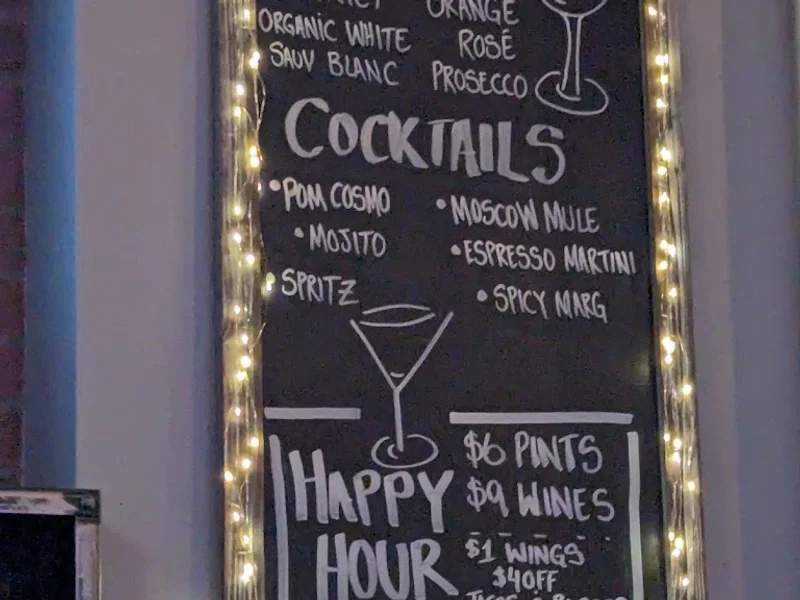 ORANGE
ORGANIC WHITE
ROSÉ
SAUV BLANC
PROSECCO
COCKTAILS
•POM COSMO
•MOSCOW MULE
•MOJITO
•ESPRESSO MARTINI
•SPRITZ
•SPICY MARG
HAPPY
HOUR
$6 PINTS
$9 WINES
$1 WINGS
$4OFF